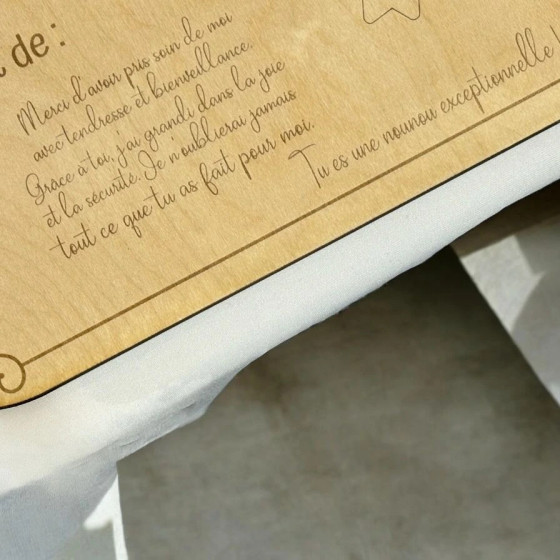 de :
Merci d'avoir pris soin de moi
avec tendresse et bienveillance.
Grâce à toi, j'ai grandi dans la joie
et la sécurité. Je n'oublierai jamais
tout ce que tu as fait pour moi.
Tu es une nounou exceptionnelle !